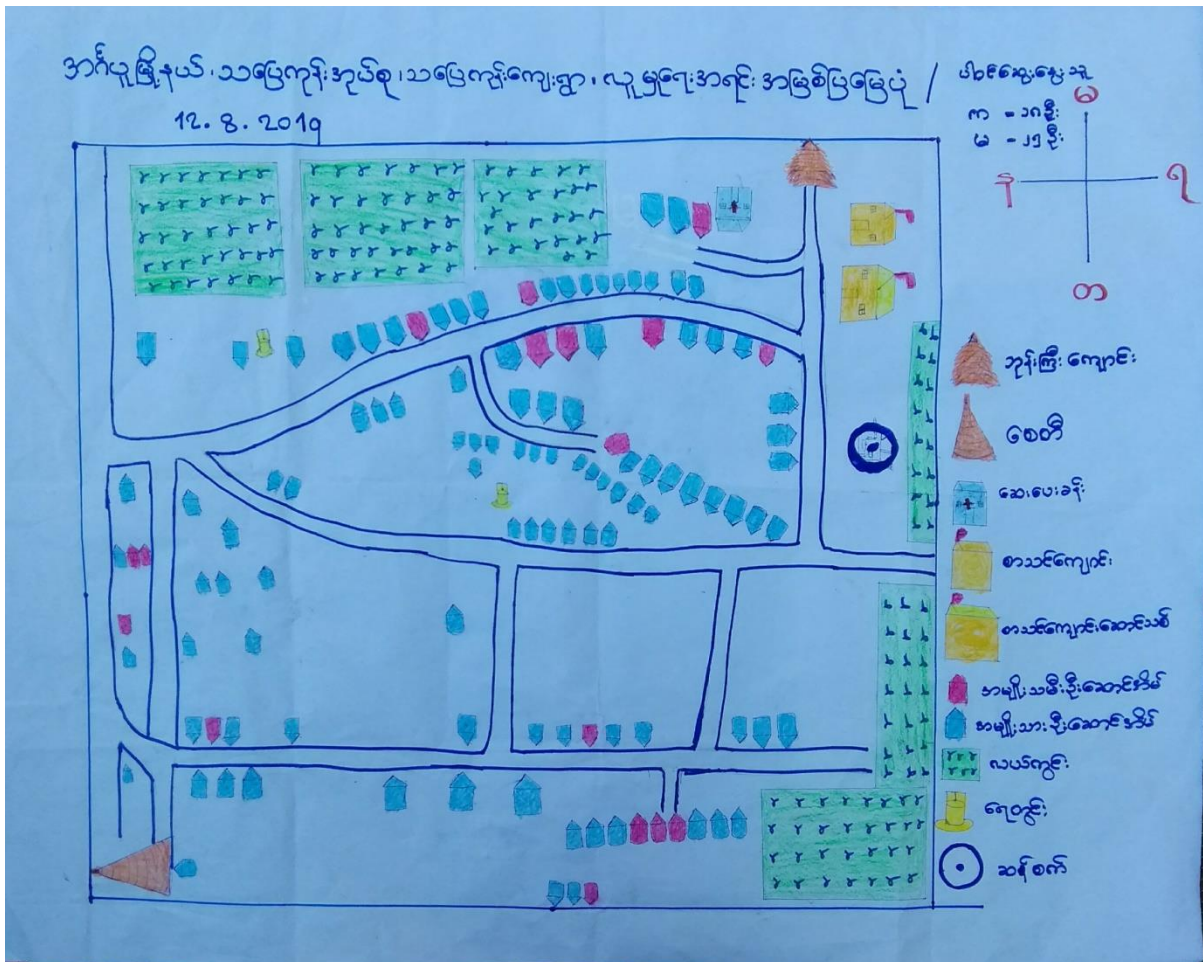 အင်္ဂပူမြို့နယ်၊ သပြေကုန်းအုပ်စု၊ သပြေကုန်းကျေးရွာ၊ လူမှုရေးအရင်းအမြစ်ပြမြေပုံ /
12. 8. 2019
ပါဝင်ဆွေးနွေးသူ
က - ၁၈ဦး
မ - ၂၅ဦး
မ
န
ရ
တ
ဘုန်းကြီးကျောင်း
စေတီ
ဆေးပေးခန်း
စာသင်ကျောင်း
စာသင်ကျောင်းဆောင်သစ်
အမျိုးသမီးဦးဆောင်အိမ်
အမျိုးသားဦးဆောင်အိမ်
လယ်ကွင်း
ရေတွင်း
ဆန်စက်